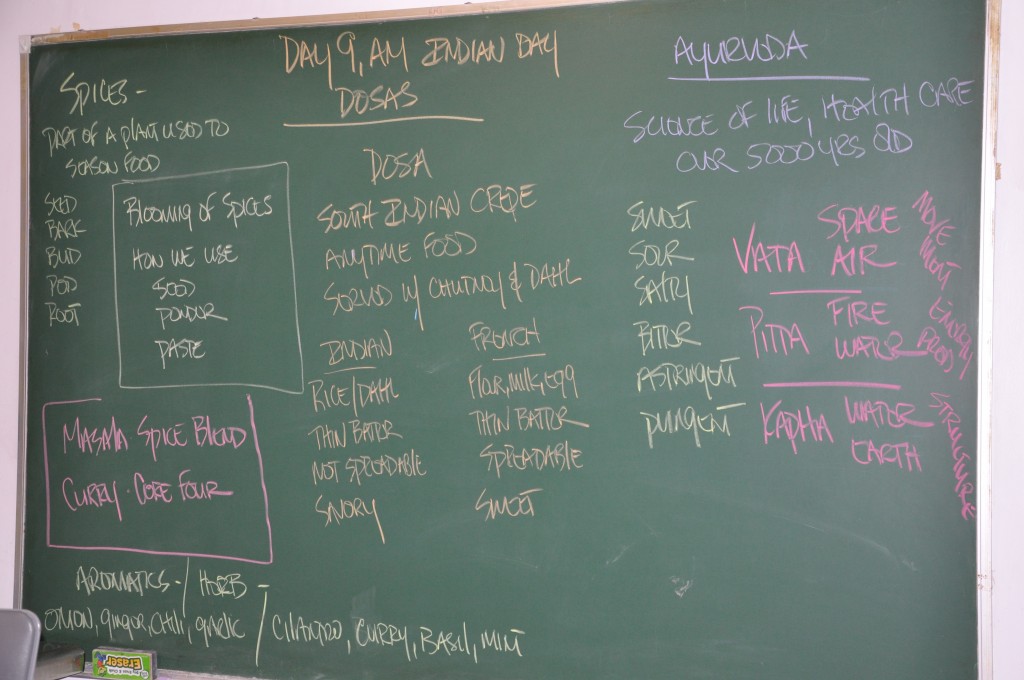 DAY 9, AM INDIAN DAY
DOSAS
SPICES -
PART OF A PLANT USED TO
SEASON FOOD
SEED
BARK
BUD
POD
ROOT
BLOOMING OF SPICES
HOW WE USE
SEED
POWDER
PASTE
MASALA SPICE BLEND
CURRY · CORE FOUR
AROMATICS - / HERB -
ONION, GINGER, CHILI, GARLIC / CILANTRO, CURRY, BASIL, MINT
DOSA
SOUTH INDIAN CREPE
ANYTIME FOOD
SERVED W/ CHUTNEY & DAHL
INDIAN
RICE/DAHL
THIN BATTER
NOT SPREADABLE
SAVORY
FRENCH
FLOUR, MILK, EGG
THIN BATTER
SPREADABLE
SWEET
AYURVEDA
SCIENCE OF LIFE, HEALTH CARE
OVER 5000 YRS OLD
SWEET
SOUR
SALTY
BITTER
ASTRINGENT
PUNGENT
VATA SPACE AIR MOVEMENT
PITTA FIRE WATER ENERGY
KAPHA WATER EARTH STRUCTURE
Eraser